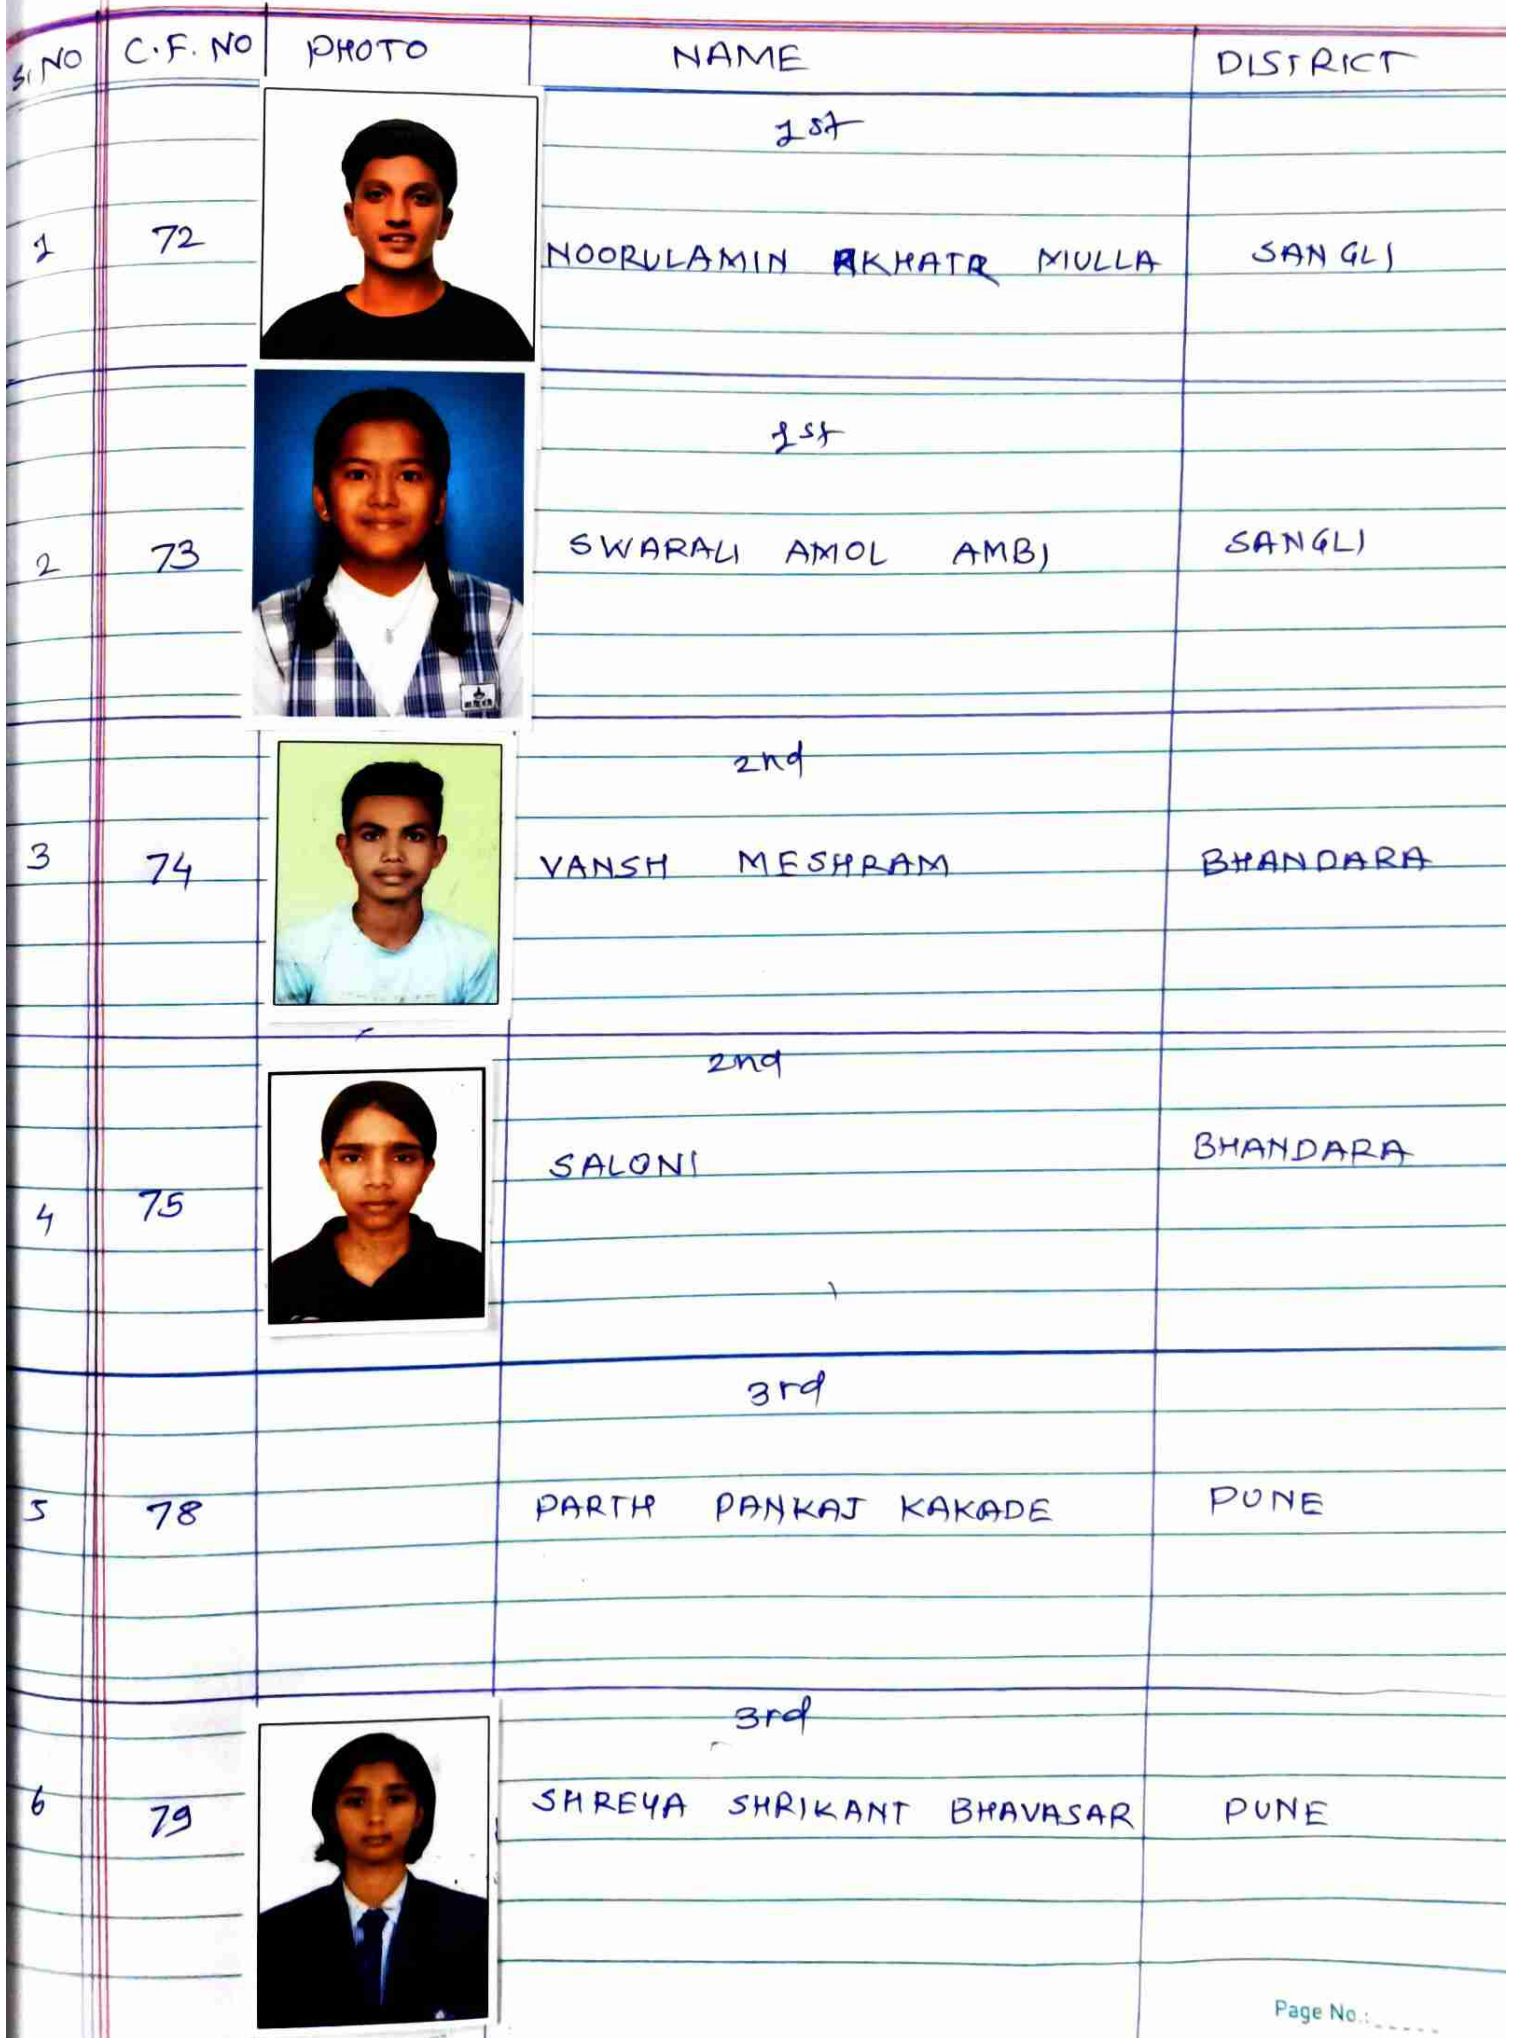 S.NO C.F. NO PHOTO NAME DISTRICT
1st
1 72 NOORULAMIN AKHATR MULLA SANGLI
1st
2 73 SWARALI AMOL AMBI SANGLI
2nd
3 74 VANSH MESHRAM BHANDARA
2nd
4 75 SALONI BHANDARA
3rd
5 78 PARTH PANKAJ KAKADE PUNE
3rd
6 79 SHREYA SHRIKANT BHAVASAR PUNE
Page No.: